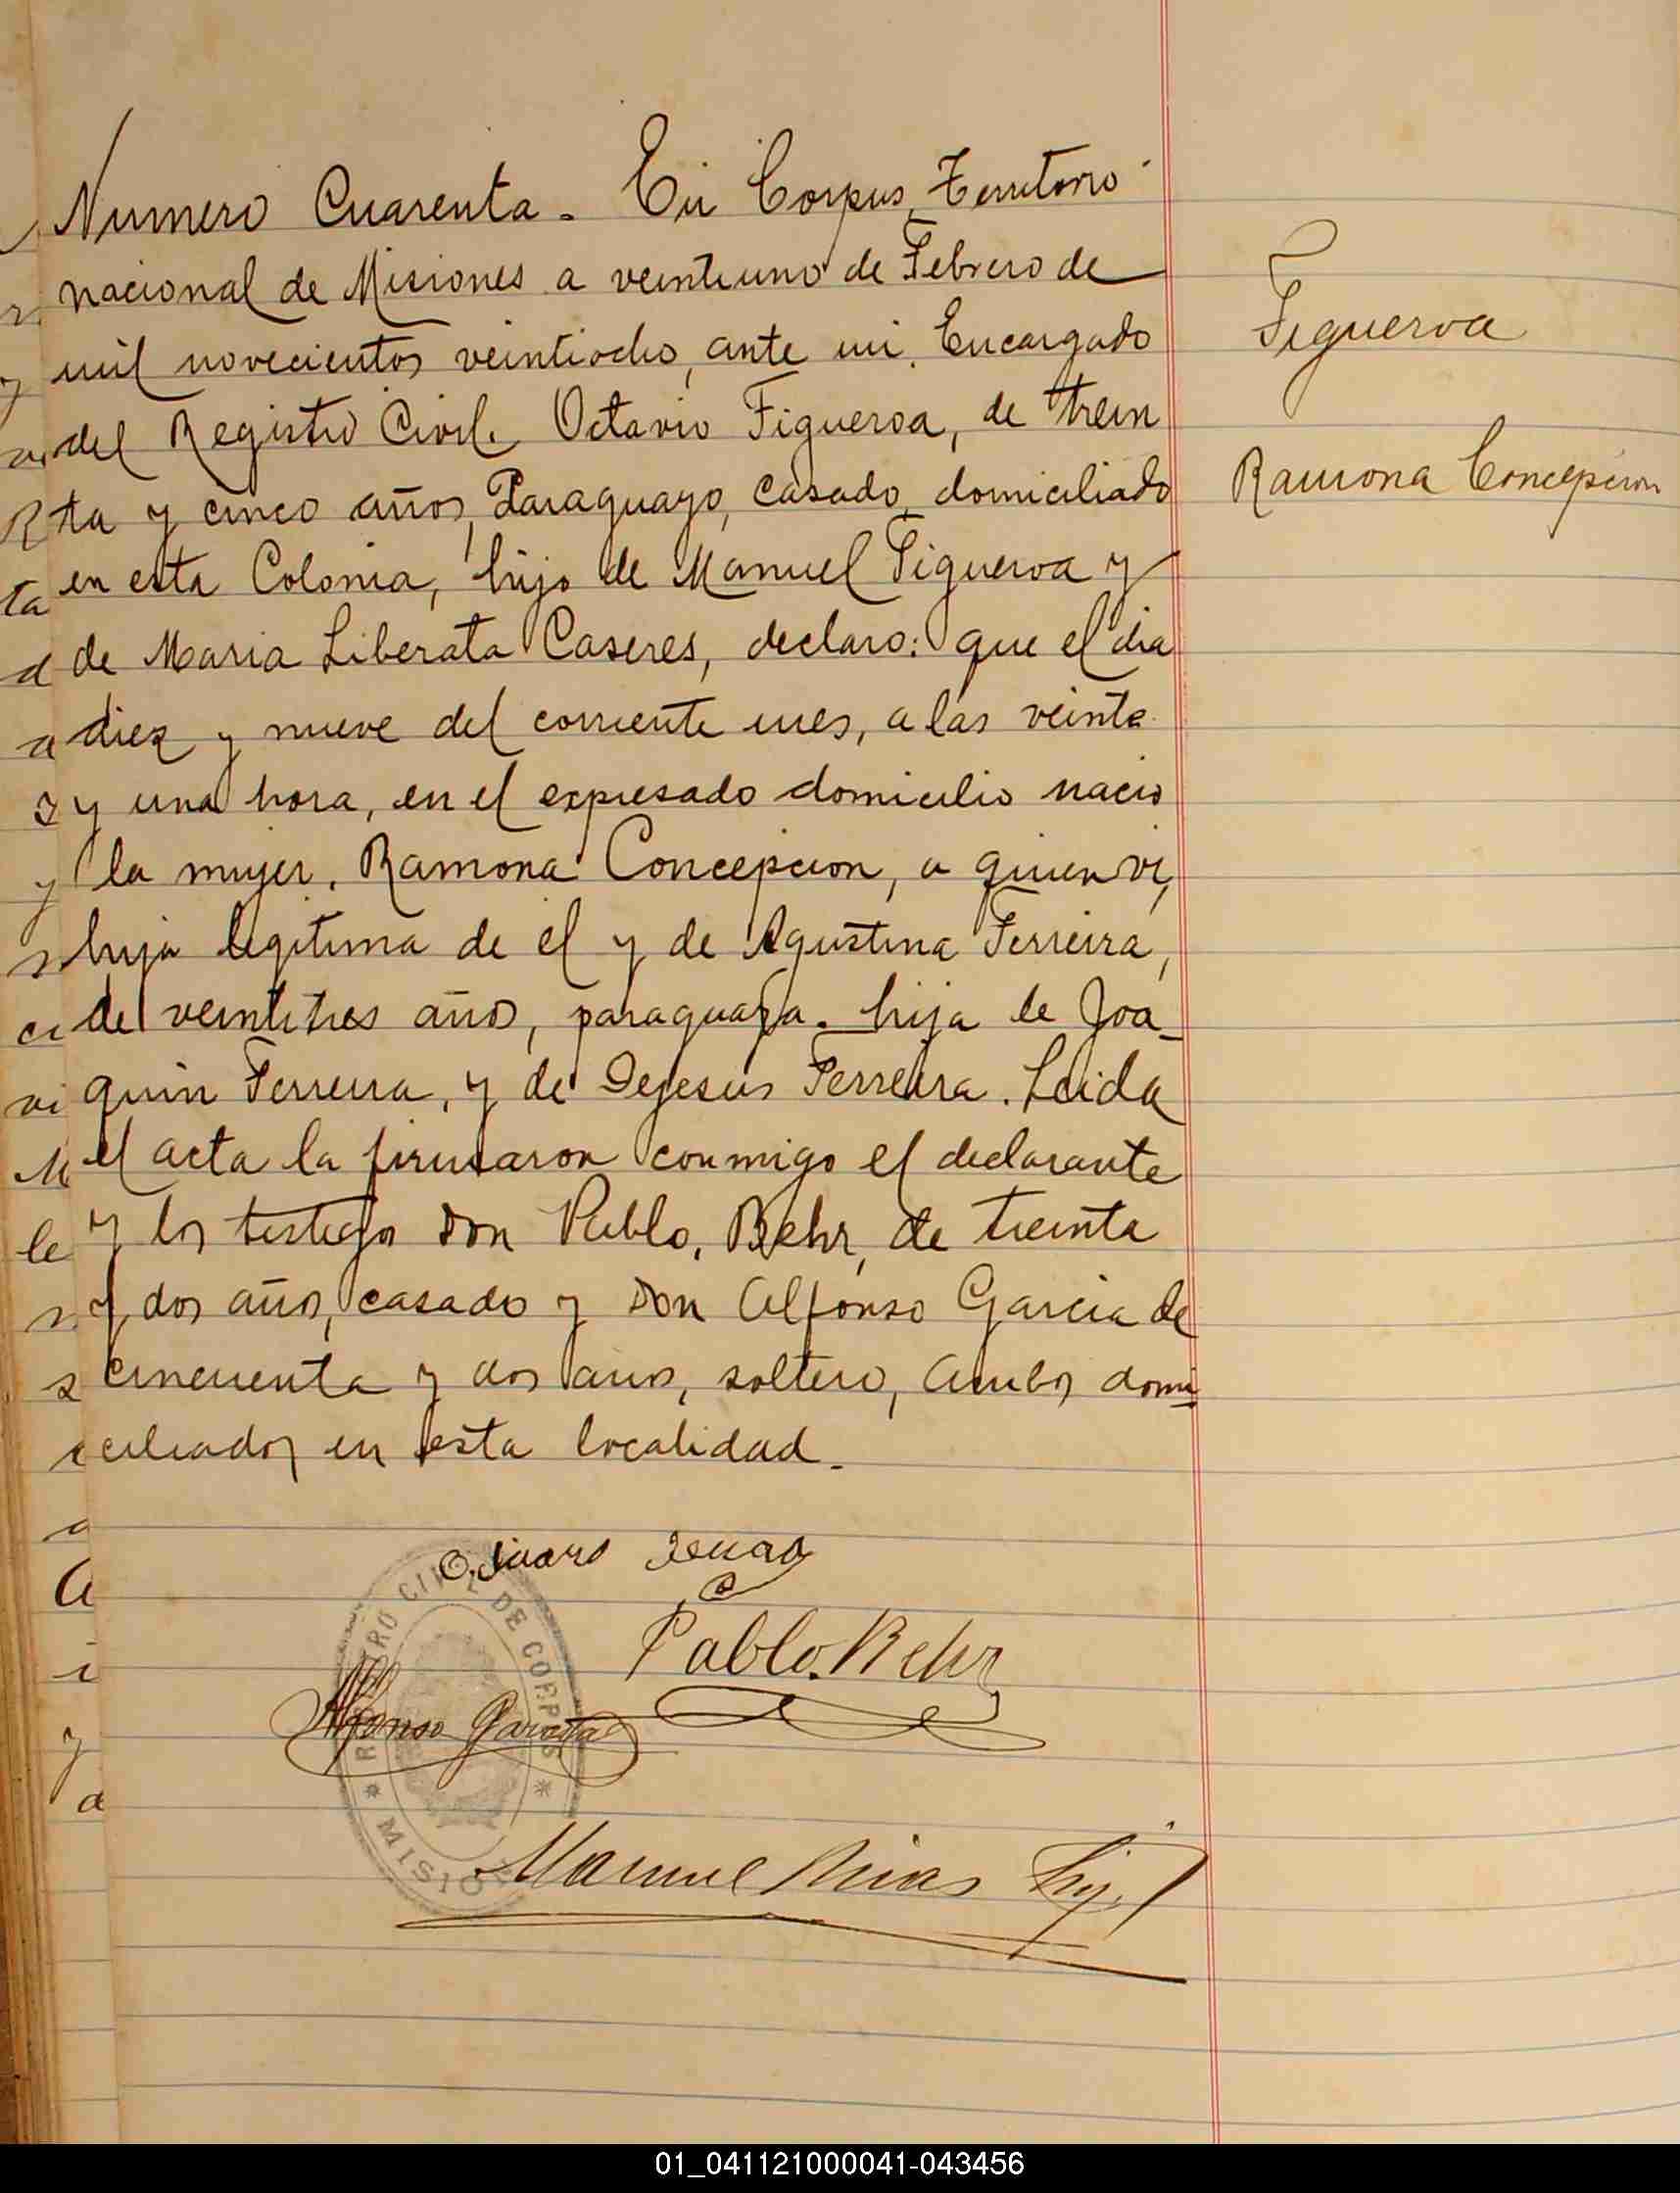 Numero Cuarenta. En Corpus, Territorio
nacional de Misiones a veintiuno de Febrero de
mil novecientos veintiocho, ante mi, Encargado
del Registro Civil. Octavio Figueroa, de trein
ta y cinco años, Paraguayo, casado, domiciliado
en esta Colonia, hijo de Manuel Figueroa y
de Maria Liberata Caseres, declaro: que el dia
diez y nueve del corriente mes, a las veinte
y una hora, en el expresado domicilio nacio
la mujer, Ramona Concepcion, a quien vi,
hija legitima de el y de Agustina Ferreira,
de veintitres años, paraguaya. hija de Joa-
quin Ferreira, y de Dejesus Ferreira. Leida
el acta la firmaron conmigo el declarante
y los testigos Don Pablo, Behr, de treinta
y dos años, casado y Don Alfonso Garcia de
cincuenta y dos años, soltero, ambos domi-
ciliados en esta localidad.
Figueroa
Ramona Concepcion
Pablo. Behr
Alfonso Garcia
REGISTRO CIVIL DE CORPUS
* MISIO
Manuel Hijo
01_041121000041-043456